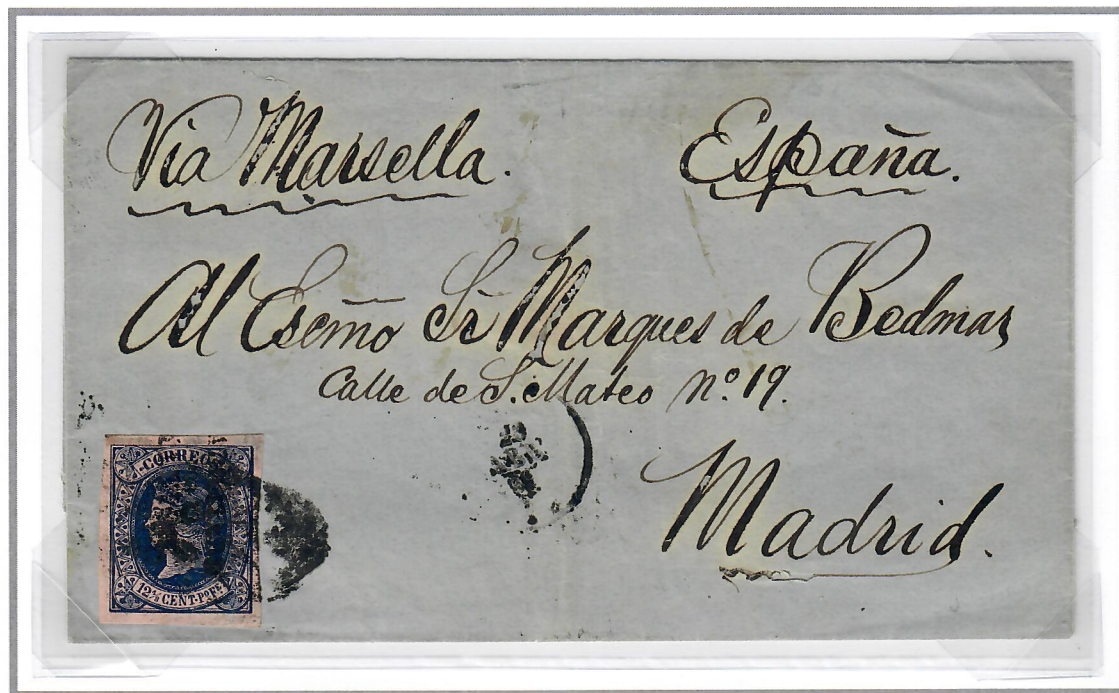 Via Marsella.
España.
Al Escmo Sr Marques de Bedmar
Calle de S. Mateo nº 19.
Madrid.
CORREOS
12 4/8 CENT. Pº Fº